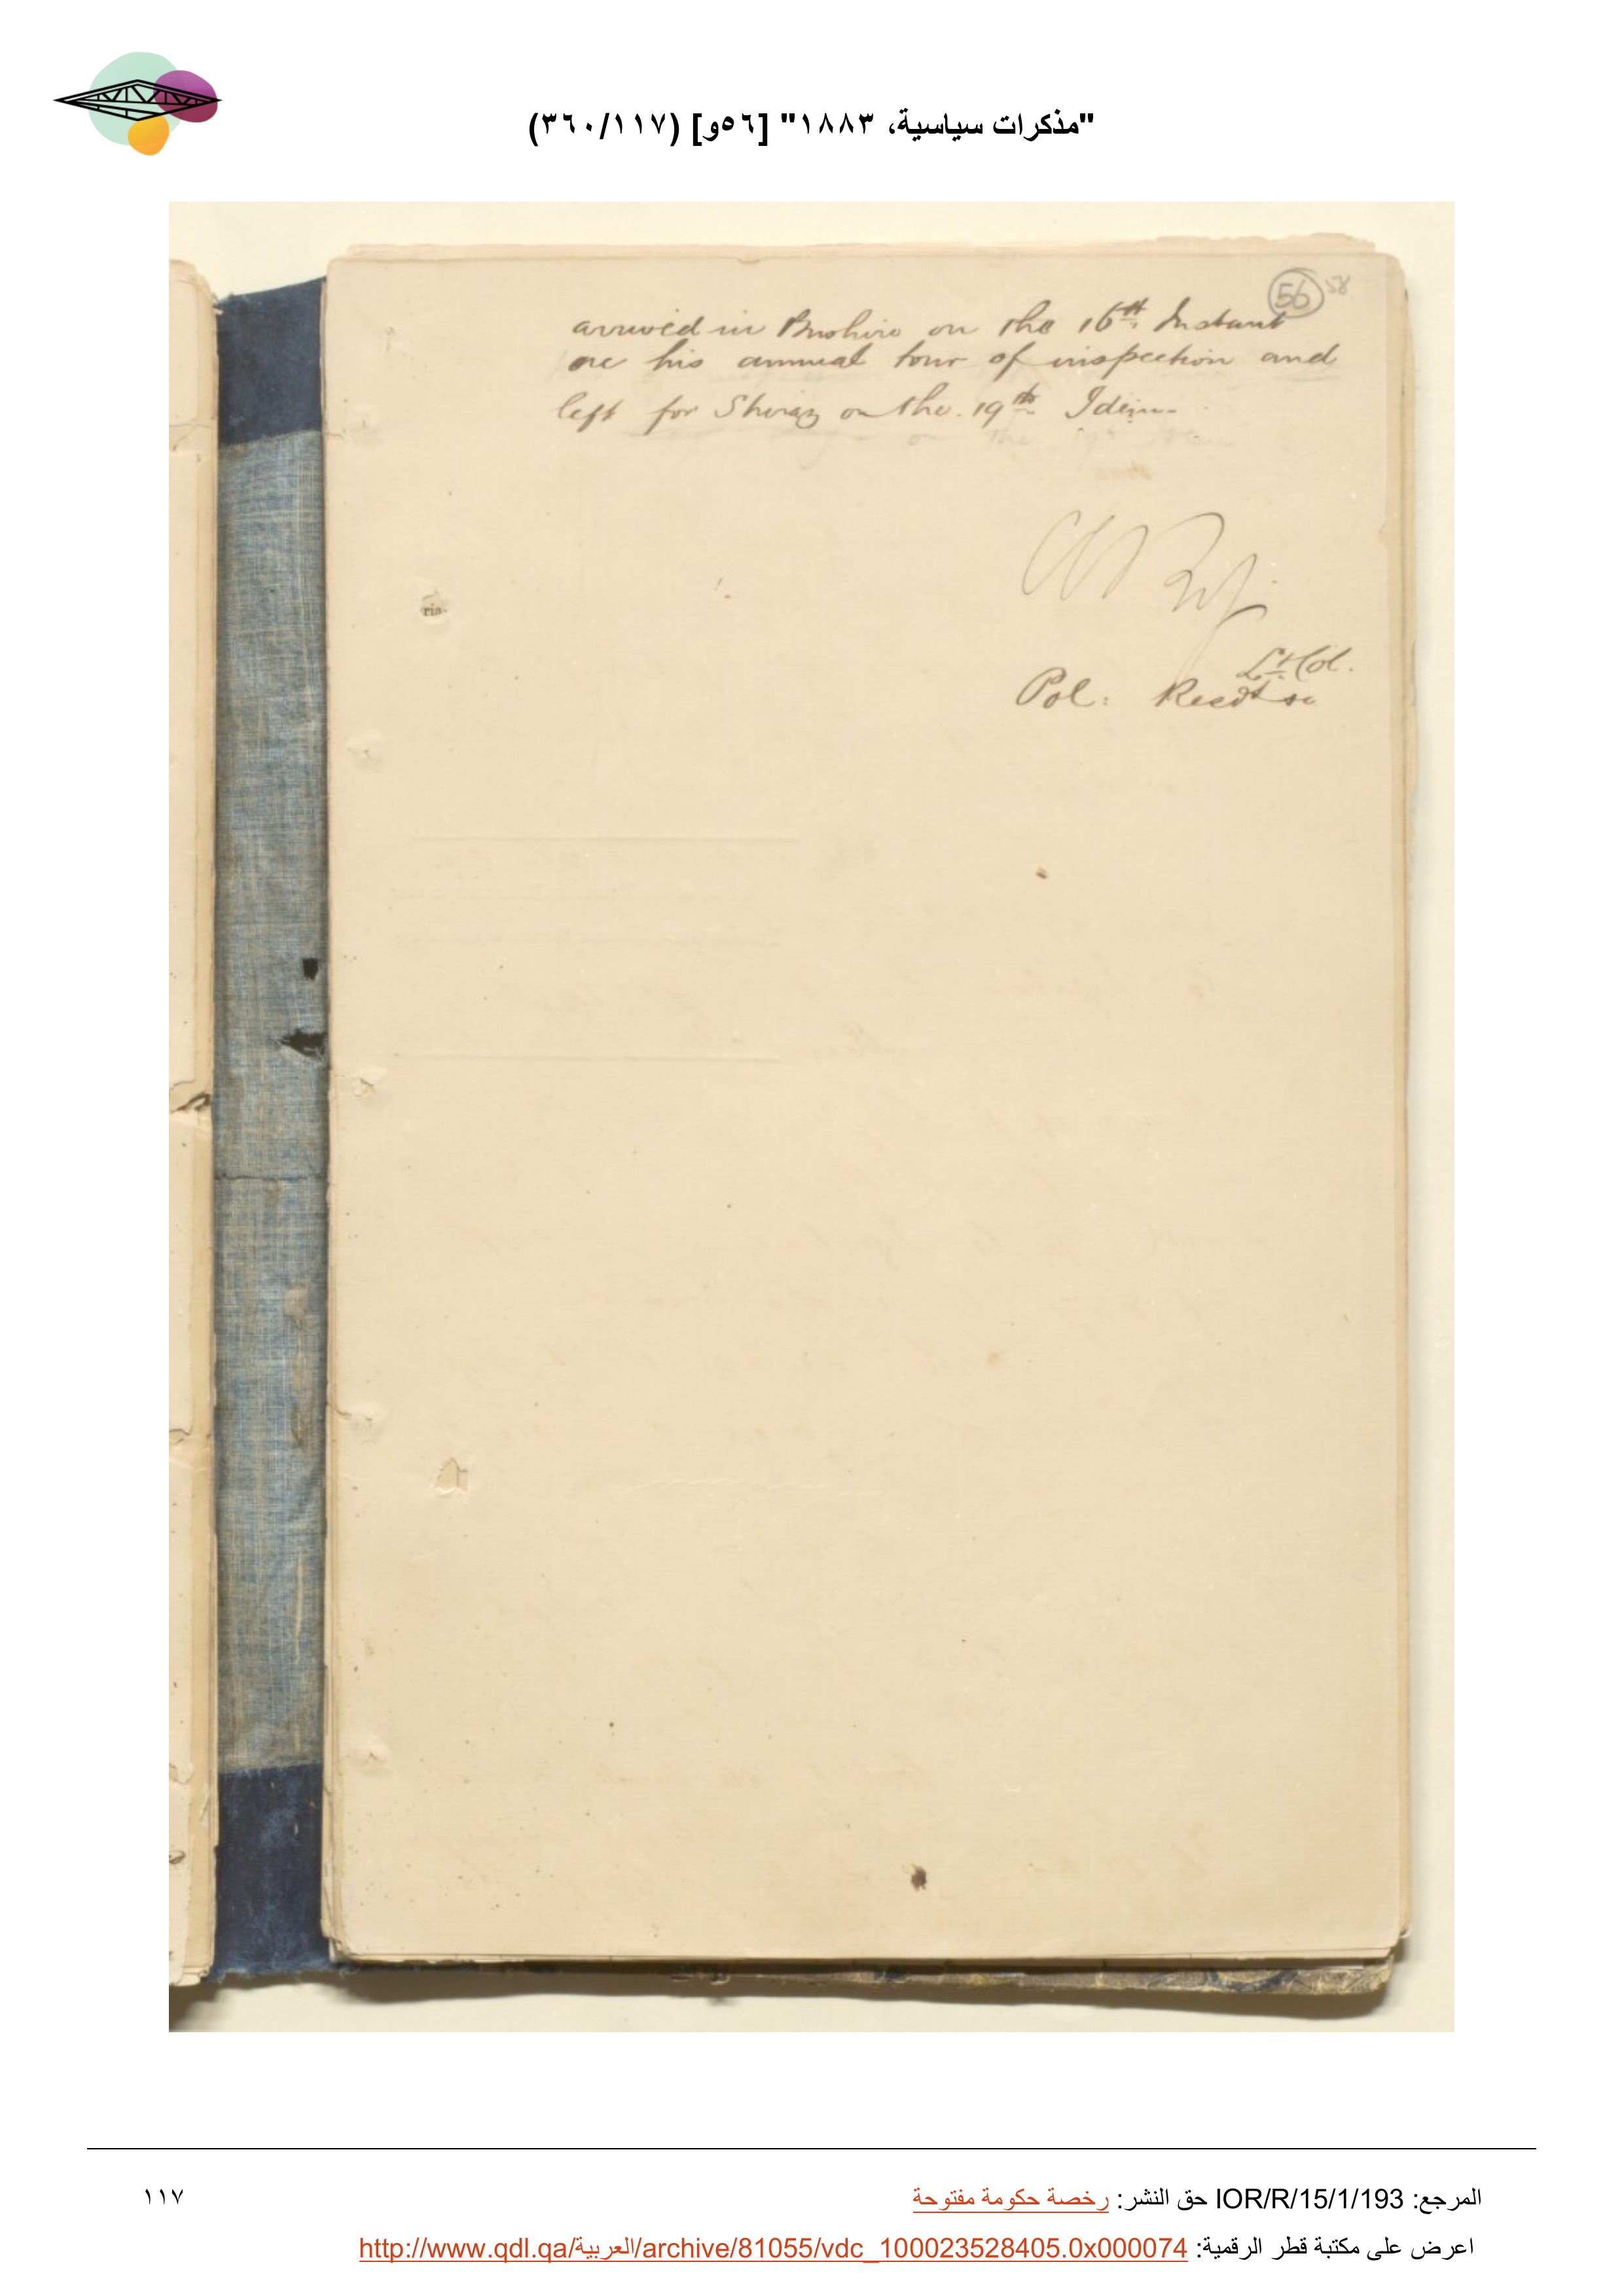 "مذكرات سياسية، ١٨٨٣" [٥٦و] (٣٦٠/١١٧)
56 58
arrived in Bushire on the 16th Instant
on his annual tour of inspection and
left for Shiraz on the 19th Idem.
Lt Col.
Pol: Resdt
المرجع: IOR/R/15/1/193 حق النشر: رخصة حكومة مفتوحة
١١٧
اعرض على مكتبة قطر الرقمية: http://www.qdl.qa/العربية/archive/81055/vdc_100023528405.0x000074